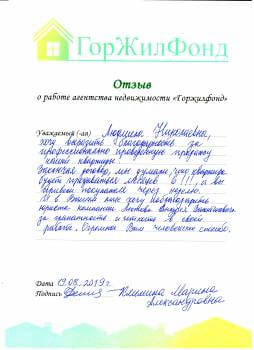 ГорЖилФонд
Отзыв
о работе агентства недвижимости «Горжилфонд»
Уважаемый (-ая) Людмила Николаевна,
хочу выразить благодарность за
профессионально проведенную продажу
нашей квартиры!
Заключая договор, мы думали, что квартира
будет продаваться месяцев 6!!!, а вы
привели покупателя через неделю.
И в Вашем лице хочу поблагодарить
юриста компании
за грамотность и
работе. Огромное Вам человеческое спасибо.
Дата 19.05.2019 г.
Подпись Климина Марина
Александровна